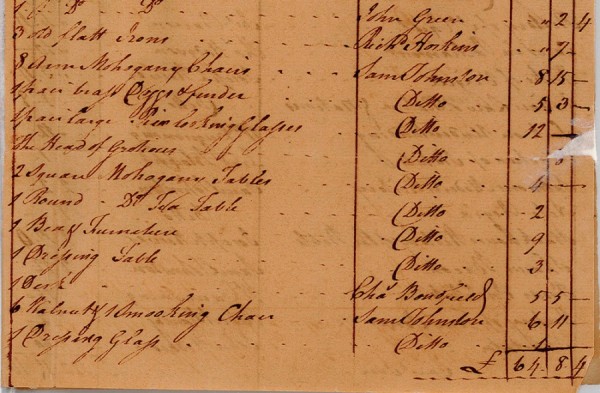 1 Do Do John Green " 2 4
3 old flatt Irons Richd Hoskins " 7 -
8 Mohogany Chairs Sam Johnston 8 15 -
1 pair brass Doggs & fender Ditto 5 3 -
1 pair large Looking Glasses Ditto 12 -
The Head of Ditto
2 Square Mohogany Tables Ditto 4 -
1 Round Do Tea Table Ditto 2
1 Bed & Furniture Ditto 9
1 Dressing Table Ditto 3
1 Desk Chas Bondfield 5 5 -
6 Walnut & 1 Smooking Chair Sam Johnston 6 11 -
1 Dressing Glass Ditto 1
£ 64 8 4